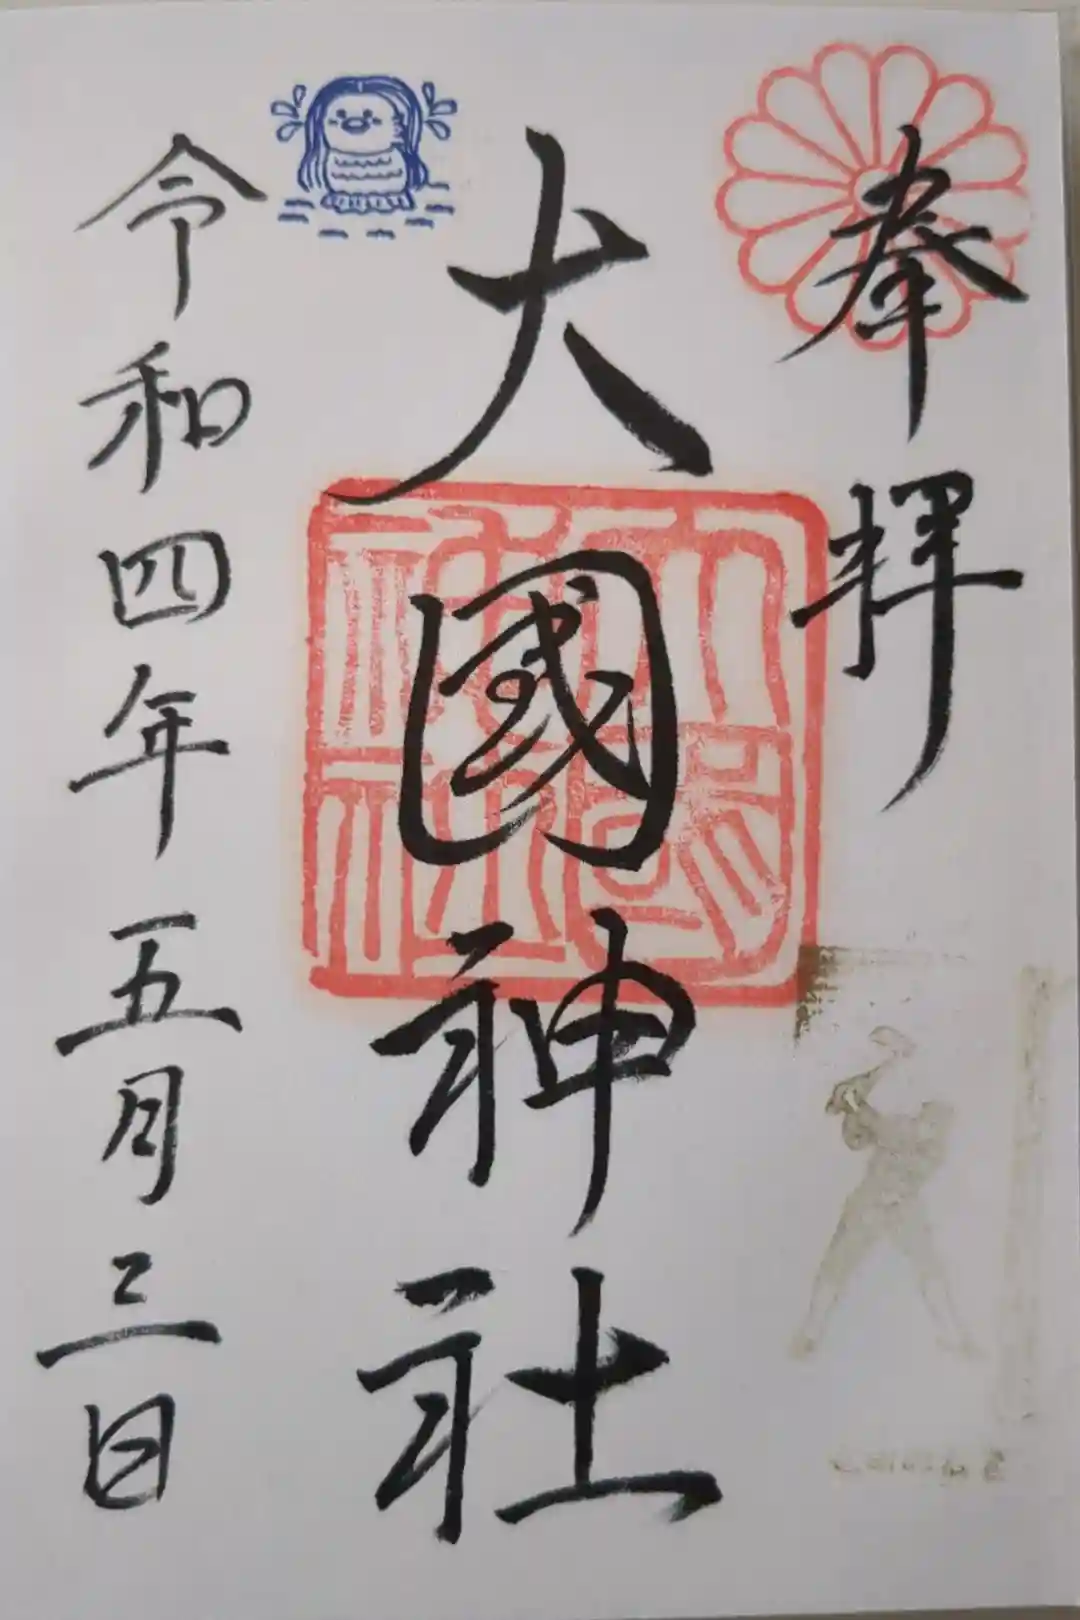 奉拝
大國神社
大國神社
令和四年五月三日